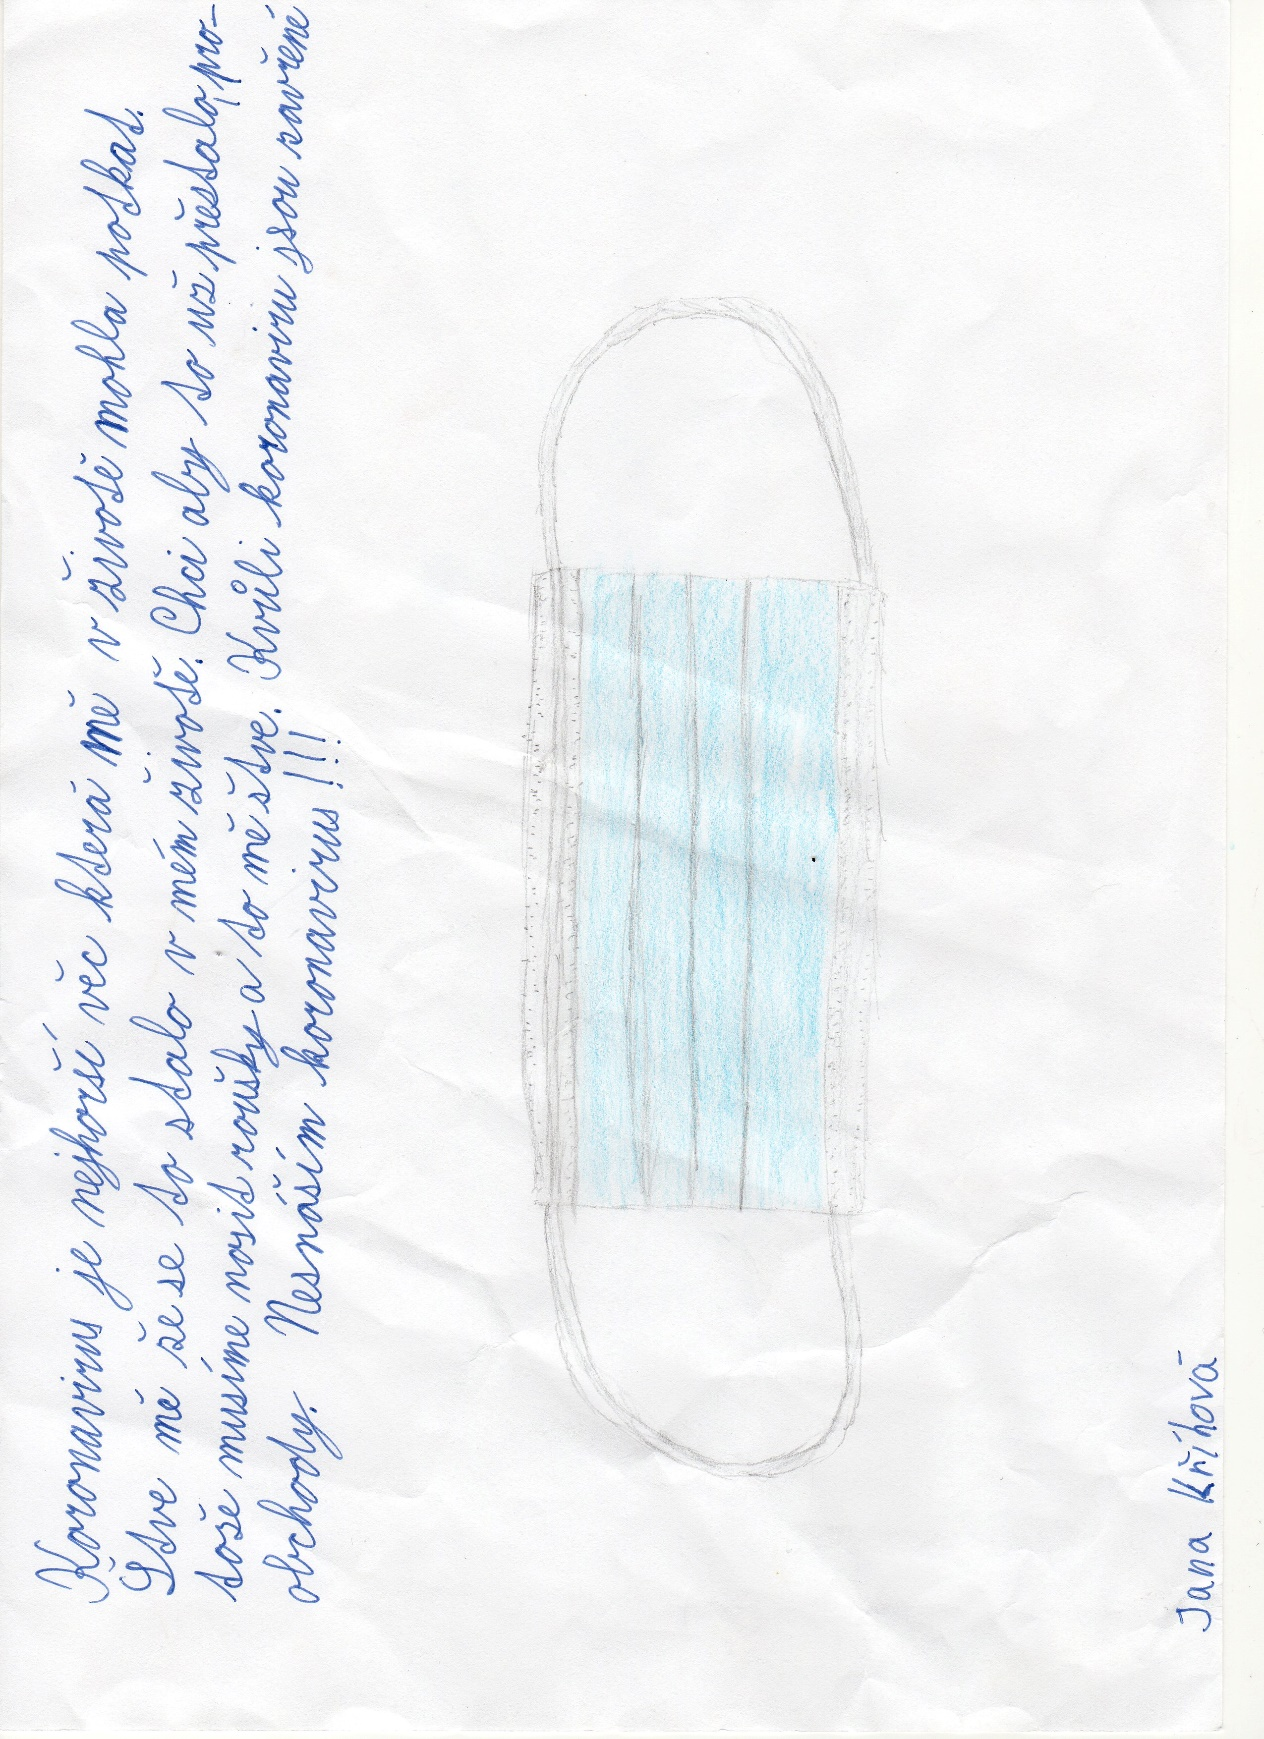 Koronavirus je nejhorší věc která mě v životě mohla potkat.
Štve mě že se to stalo v mém životě. Chci aby to už přestalo, pro-
tože musíme nosit roušky a to mě štve. Kvůli koronaviru jsou zavřené
obchody. Nesnáším koronavirus!!!
Jana Křihová